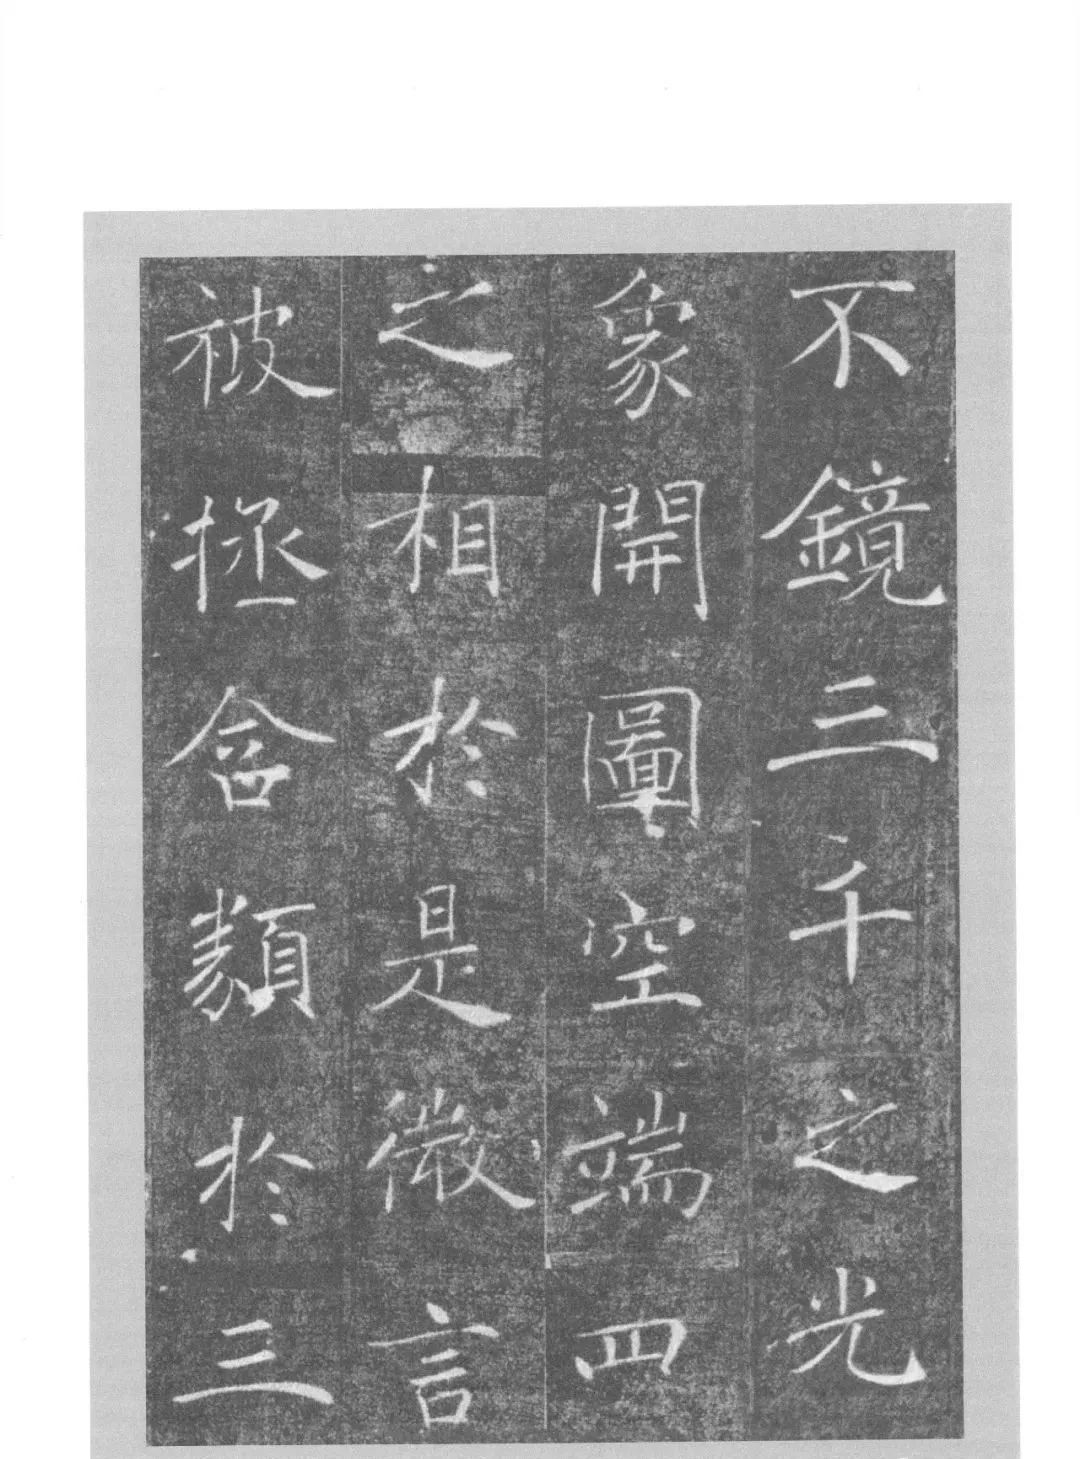 不鏡三千之光
象開圖空端四
之相於是微言
被拯含類於三